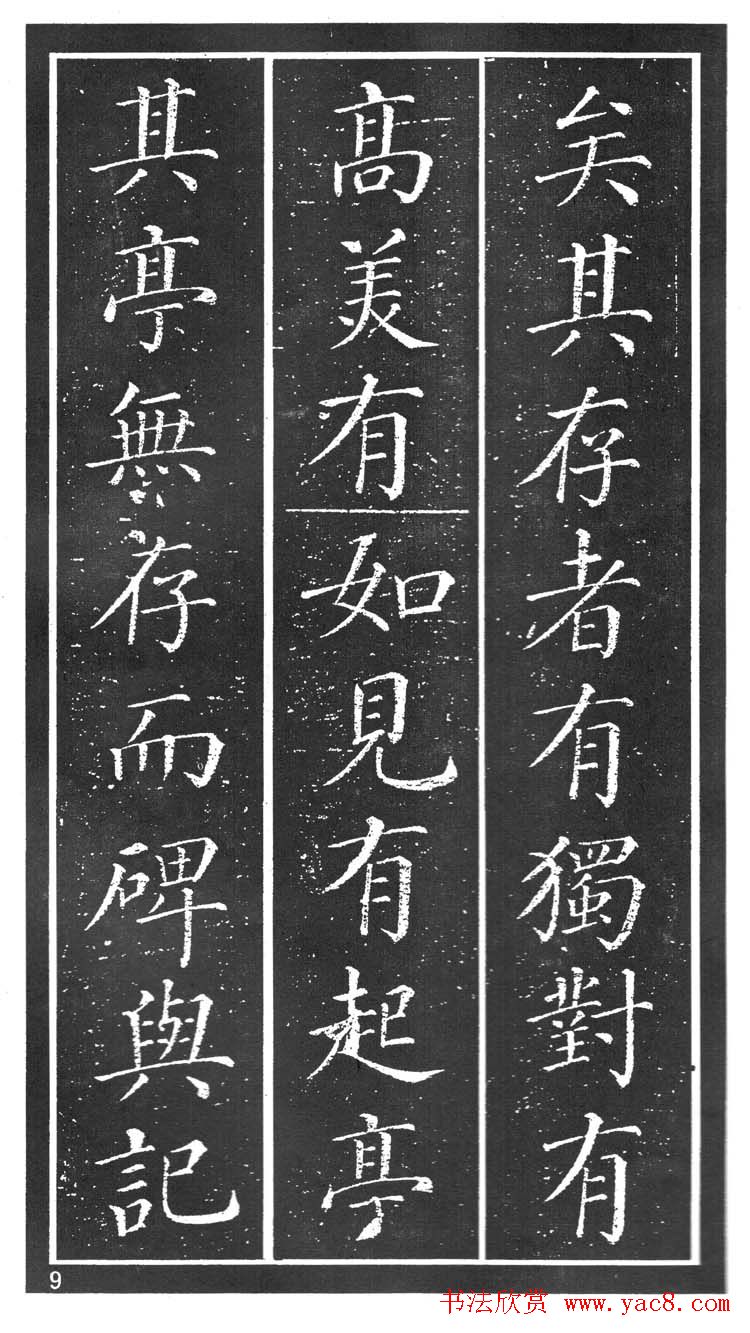 矣其存者有獨對有
髙美有如見有起亭
其亭無存而碑與記
9
书法欣赏 www.yac8.com